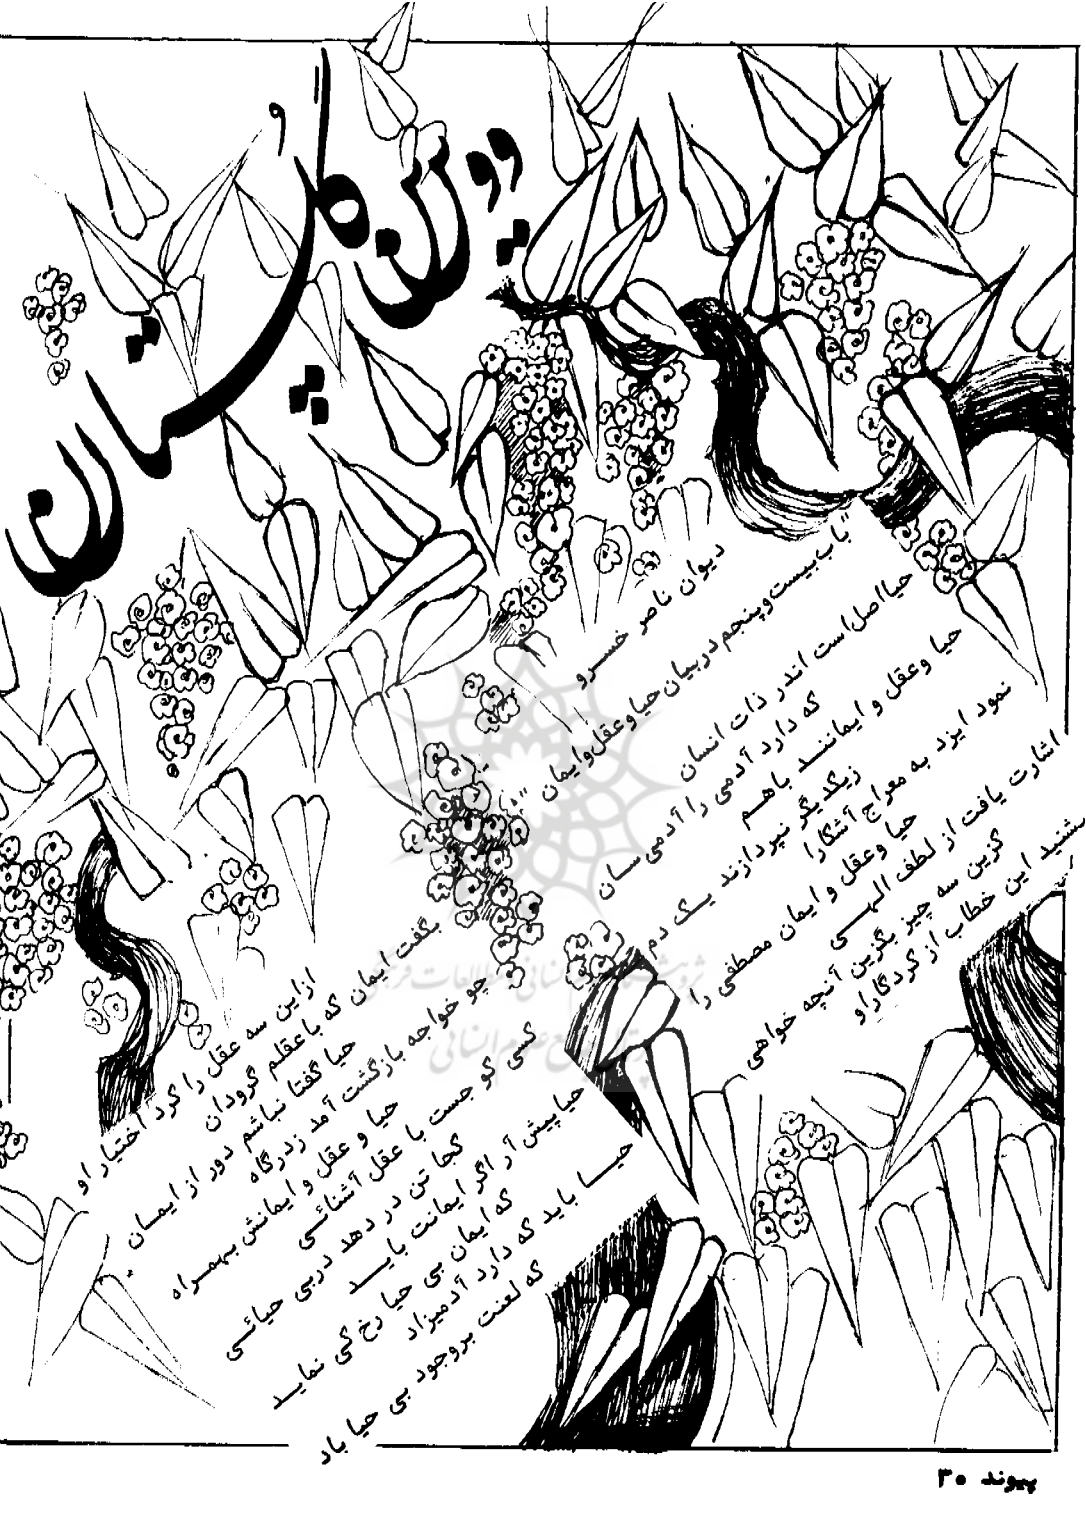 دیوان ناصر خسرو
"باب بیست و پنجم در بیان حیا و عقل و ایمان"
حیا اصل است اندر ذات انسان
که دارد آدمی را آدمی سان
حیا و عقل و ایمانند با هم
زیکدیگر نپردازند یک دم
نمود ایزد به معراج آشکارا
حیا و عقل و ایمان مصطفی را
اشارت یافت از لطف الهی
کزین سه چیز بگزین آنچه خواهی
بشنید این خطاب از کردگار او
از این سه عقل را کرد اختیار او
بگفت ایمان که با عقلم گرودان
حیا گفتا نباشم دور از ایمان
چو خواجه بازگشت آمد ز درگاه
حیا و عقل و ایمانش بهمراه
کسی کو جست با عقل آشنائی
کجا تن در دهد در بی حیائی
حیا پیش آر اگر ایمانت باید
که ایمان بی حیا رخ کی نماید
حیا باید که دارد آدمیزاد
که لعنت بر وجود بی حیا باد
پیوند ۳۰